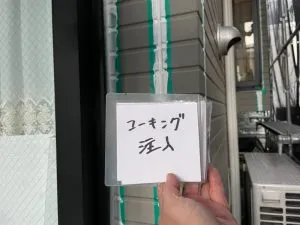 コーキング
注入